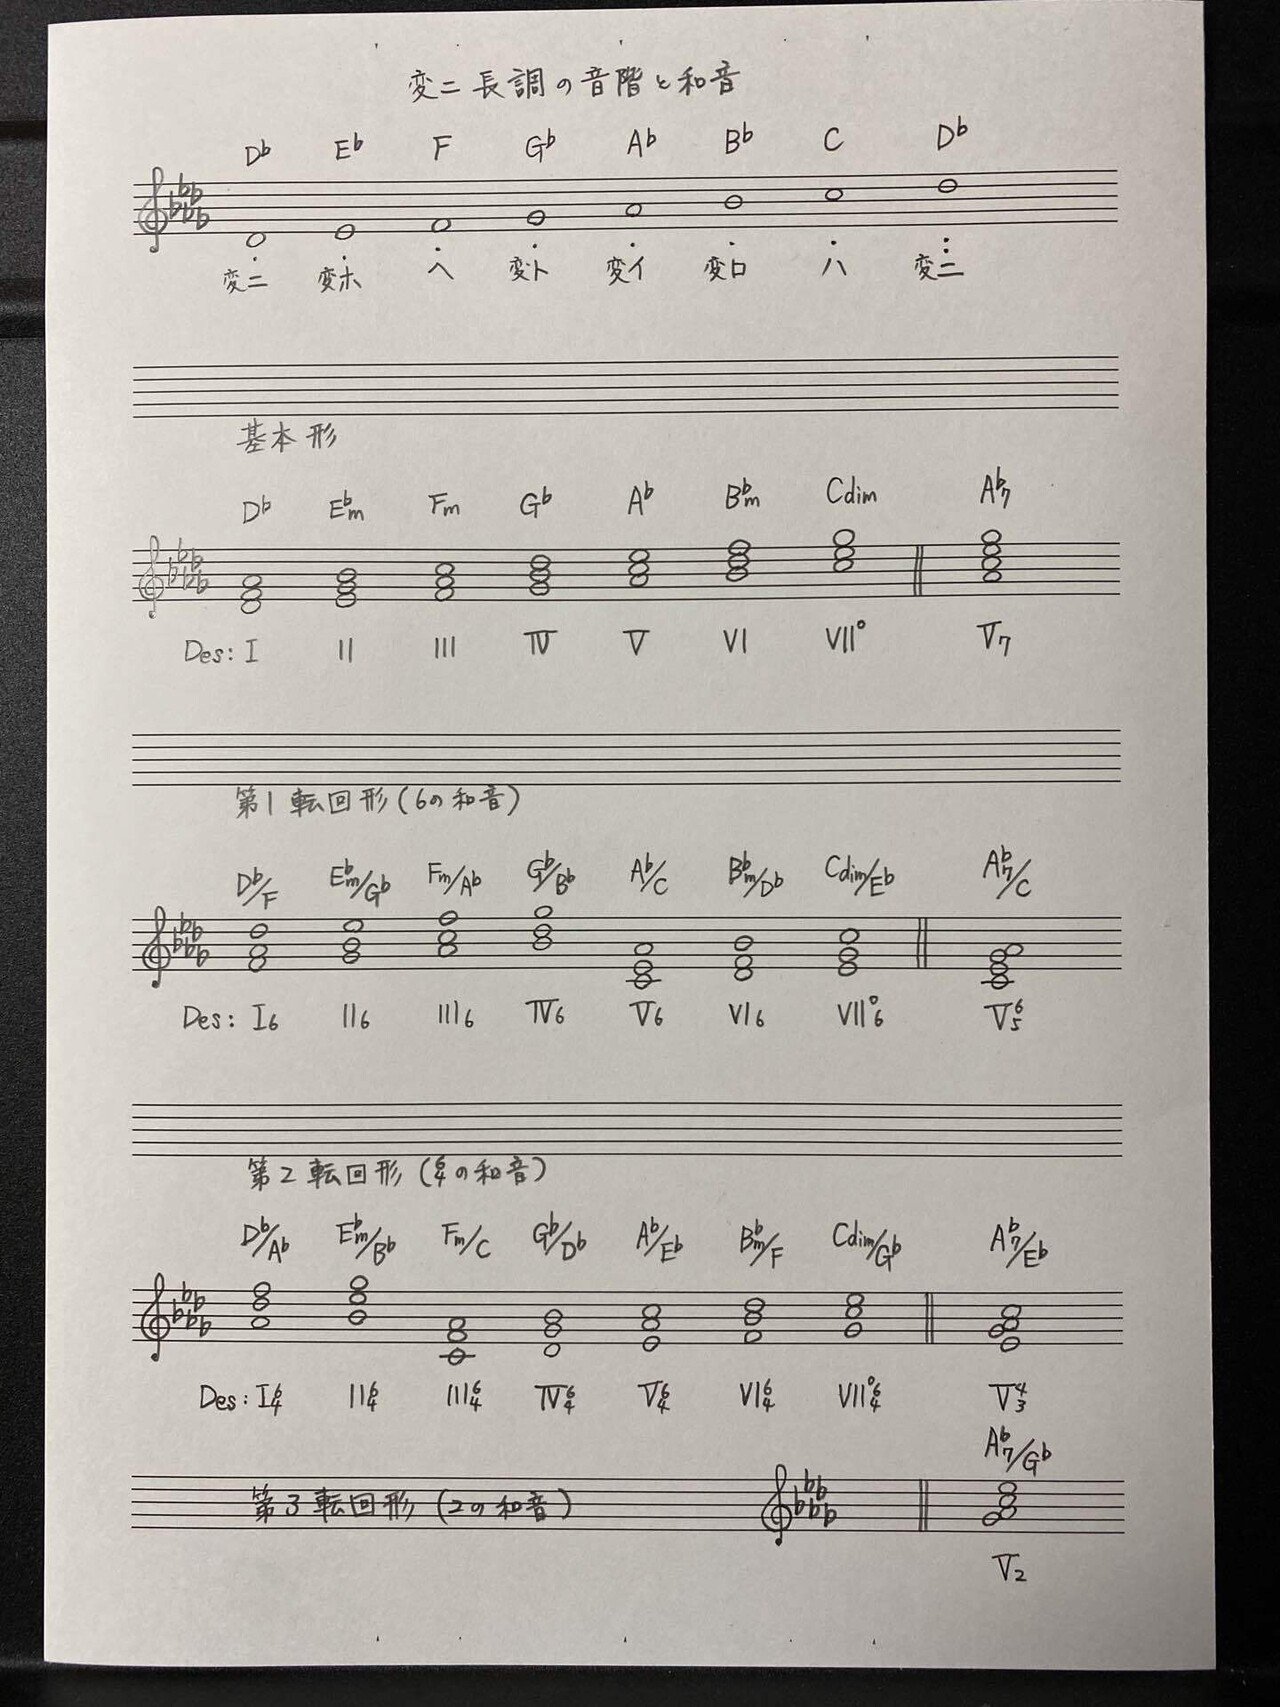 変ニ長調の音階と和音
D♭ E♭ F G♭ A♭ B♭ C D♭
変ニ 変ホ ヘ 変ト 変イ 変ロ ハ 変ニ
基本形
D♭ E♭m Fm G♭ A♭ B♭m Cdim A♭7
Des: I II III IV V VI VII° V7
第1転回形(6の和音)
D♭/F E♭m/G♭ Fm/A♭ G♭/B♭ A♭/C B♭m/D♭ Cdim/E♭ A♭7/C
Des: I6 II6 III6 IV6 V6 VI6 VII°6 V6 5
第2転回形(6 4の和音)
D♭/A♭ E♭m/B♭ Fm/C G♭/D♭ A♭/E♭ B♭m/F Cdim/G♭ A♭7/E♭
Des: I6 4 II6 4 III6 4 IV6 4 V6 4 VI6 4 VII°6 4 V4 3
A♭7/G♭
第3転回形(2の和音)
V2